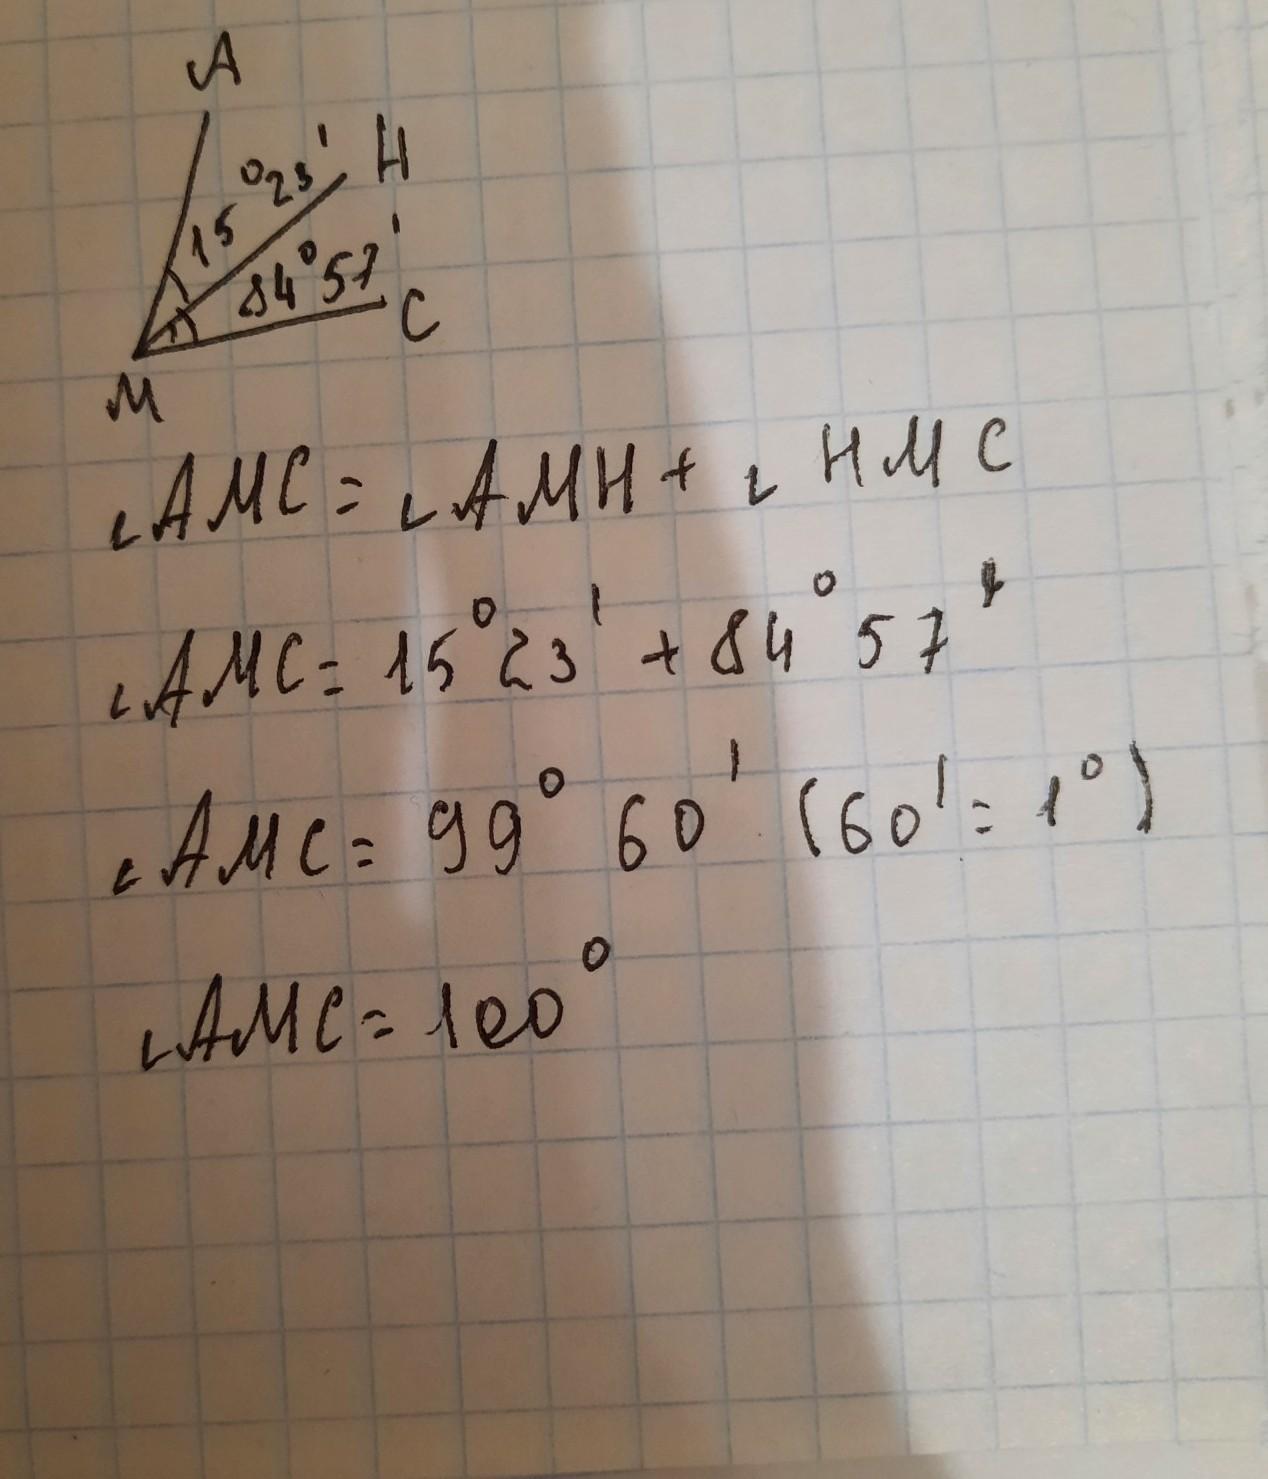 A
15°23' H
84°57' C
M
∠AMC = ∠AMH + ∠HMC
∠AMC = 15°23' + 84°57'
∠AMC = 99°60' (60' = 1°)
∠AMC = 100°